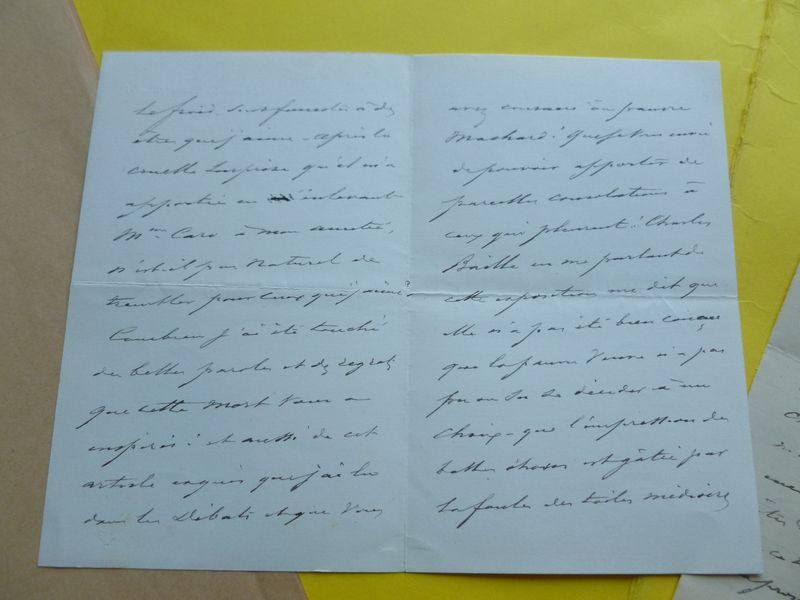 le froid soit funeste à des
êtres que j'aime - après la
cruelle surprise qu'il m'a
apportée en m'enlevant
Mme Caro à mon amitié,
n'est-il pas naturel de
trembler pour ceux qu'j'aime?
Combien j'ai été touché
des belles paroles et des regrets
que cette mort vous a
inspirés! et aussi de cet
article exquis que j'ai lu
dans les Débats et que vous
avez consacré au pauvre
Machard! Que je vous envie
de pouvoir apporter de
pareilles consolations à
ceux qui pleurent! Charles
Baille en me parlant de
cette exposition me dit que
elle n'a pas été bien conçue
que la pauvre veuve n'a pas
pu ou su se décider à un
choix - que l'impression des
belles choses est gâtée par
la foule des toiles médiocres